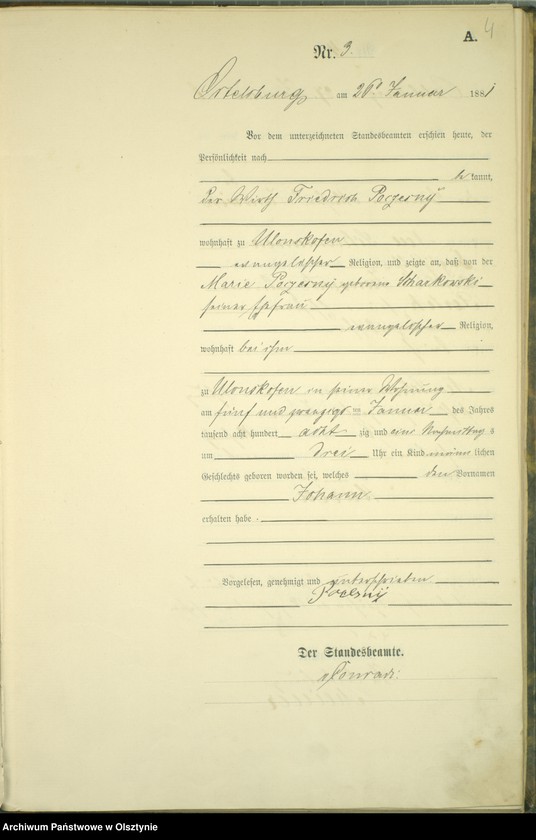 A. 4
Nr. 3.
Ortelsburg am 26ten Januar 1881
Vor dem unterzeichneten Standesbeamten erschien heute, der
Persönlichkeit nach
be kannt,
der Wirth Friedrich
wohnhaft zu Ulonskofen
evangelischer Religion, und zeigte an, daß von der
Marie geborene Scharkowski
seiner Ehefrau
evangelischer Religion,
wohnhaft bei ihm
zu Ulonskofen in seiner Wohnung
am fünf und zwanzigsten Januar des Jahres
tausend acht hundert acht zig und eins Nachmittags
um drei Uhr ein Kind männ lichen
Geschlechts geboren worden sei, welches den Vornamen
Johann
erhalten habe.
Vorgelesen, genehmigt und unterschrieben
Der Standesbeamte.
Conradi.
Archiwum Państwowe w Olsztynie